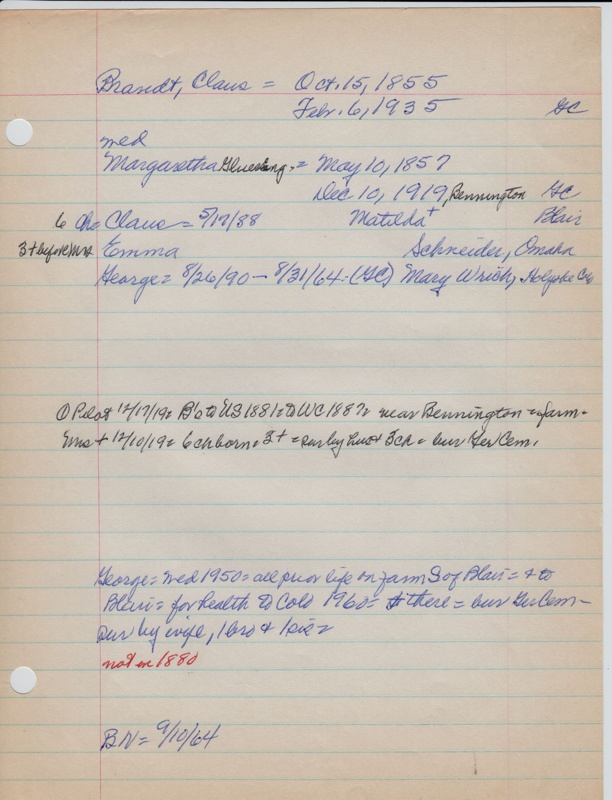 Brandt, Claus = Oct. 15, 1855
Febr. 6, 1935 GC
wed
Margaretha Gluesing = May 10, 1857
Dec 10, 1919, Bennington GC
6 Chd Claus = 5/17/88 Matilda+ Blair
3+ before Mrs Emma Schneider, Omaha
George = 8/26/90 - 8/31/64 = (GC) Mary Wrich, Holyoke Colo
O Pilot 12/17/19 = B to US 1881 = to WC 1887 = near Bennington = farm =
Mrs + 12/10/19 = 6 ch born = 3+ = sur by hus + 3 ch = bur Ger Cem.
George = wed 1950 = all prior life on farm S of Blair = + to
Blair = for health to Colo 1960 = + there = bur Ger Cem -
sur by wife, 1 bro + 1 sis =
not in 1880
BN = 9/10/64